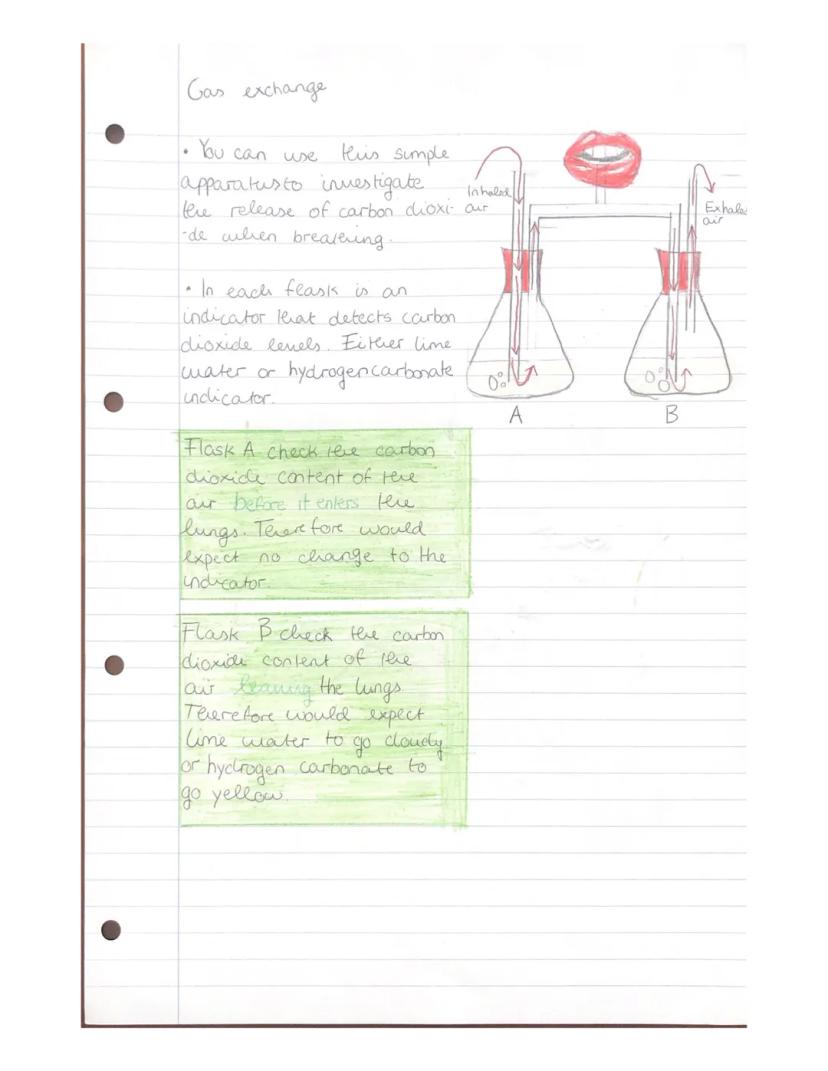 Gas exchange
• You can use this simple
apparatus to investigate
the release of carbon dioxi-
-de when breathing.
Inhaled
air
Exhale
air
• In each flask is an
indicator that detects carbon
dioxide levels. Either lime
water or hydrogencarbonate
indicator.
A
B
Flask A check the carbon
dioxide content of the
air before it enters the
lungs. Therefore would
expect no change to the
indicator.
Flask B check the carbon
dioxide content of the
air leaving the lungs.
Therefore would expect
lime water to go cloudy
or hydrogen carbonate to
go yellow.